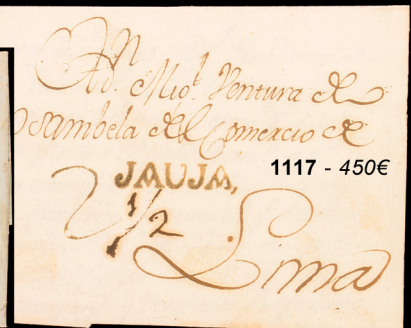 A Dn. Migl. Ventura de
Osambela del Comercio de
JAUJA,
1117 - 450€
1/2
Lima